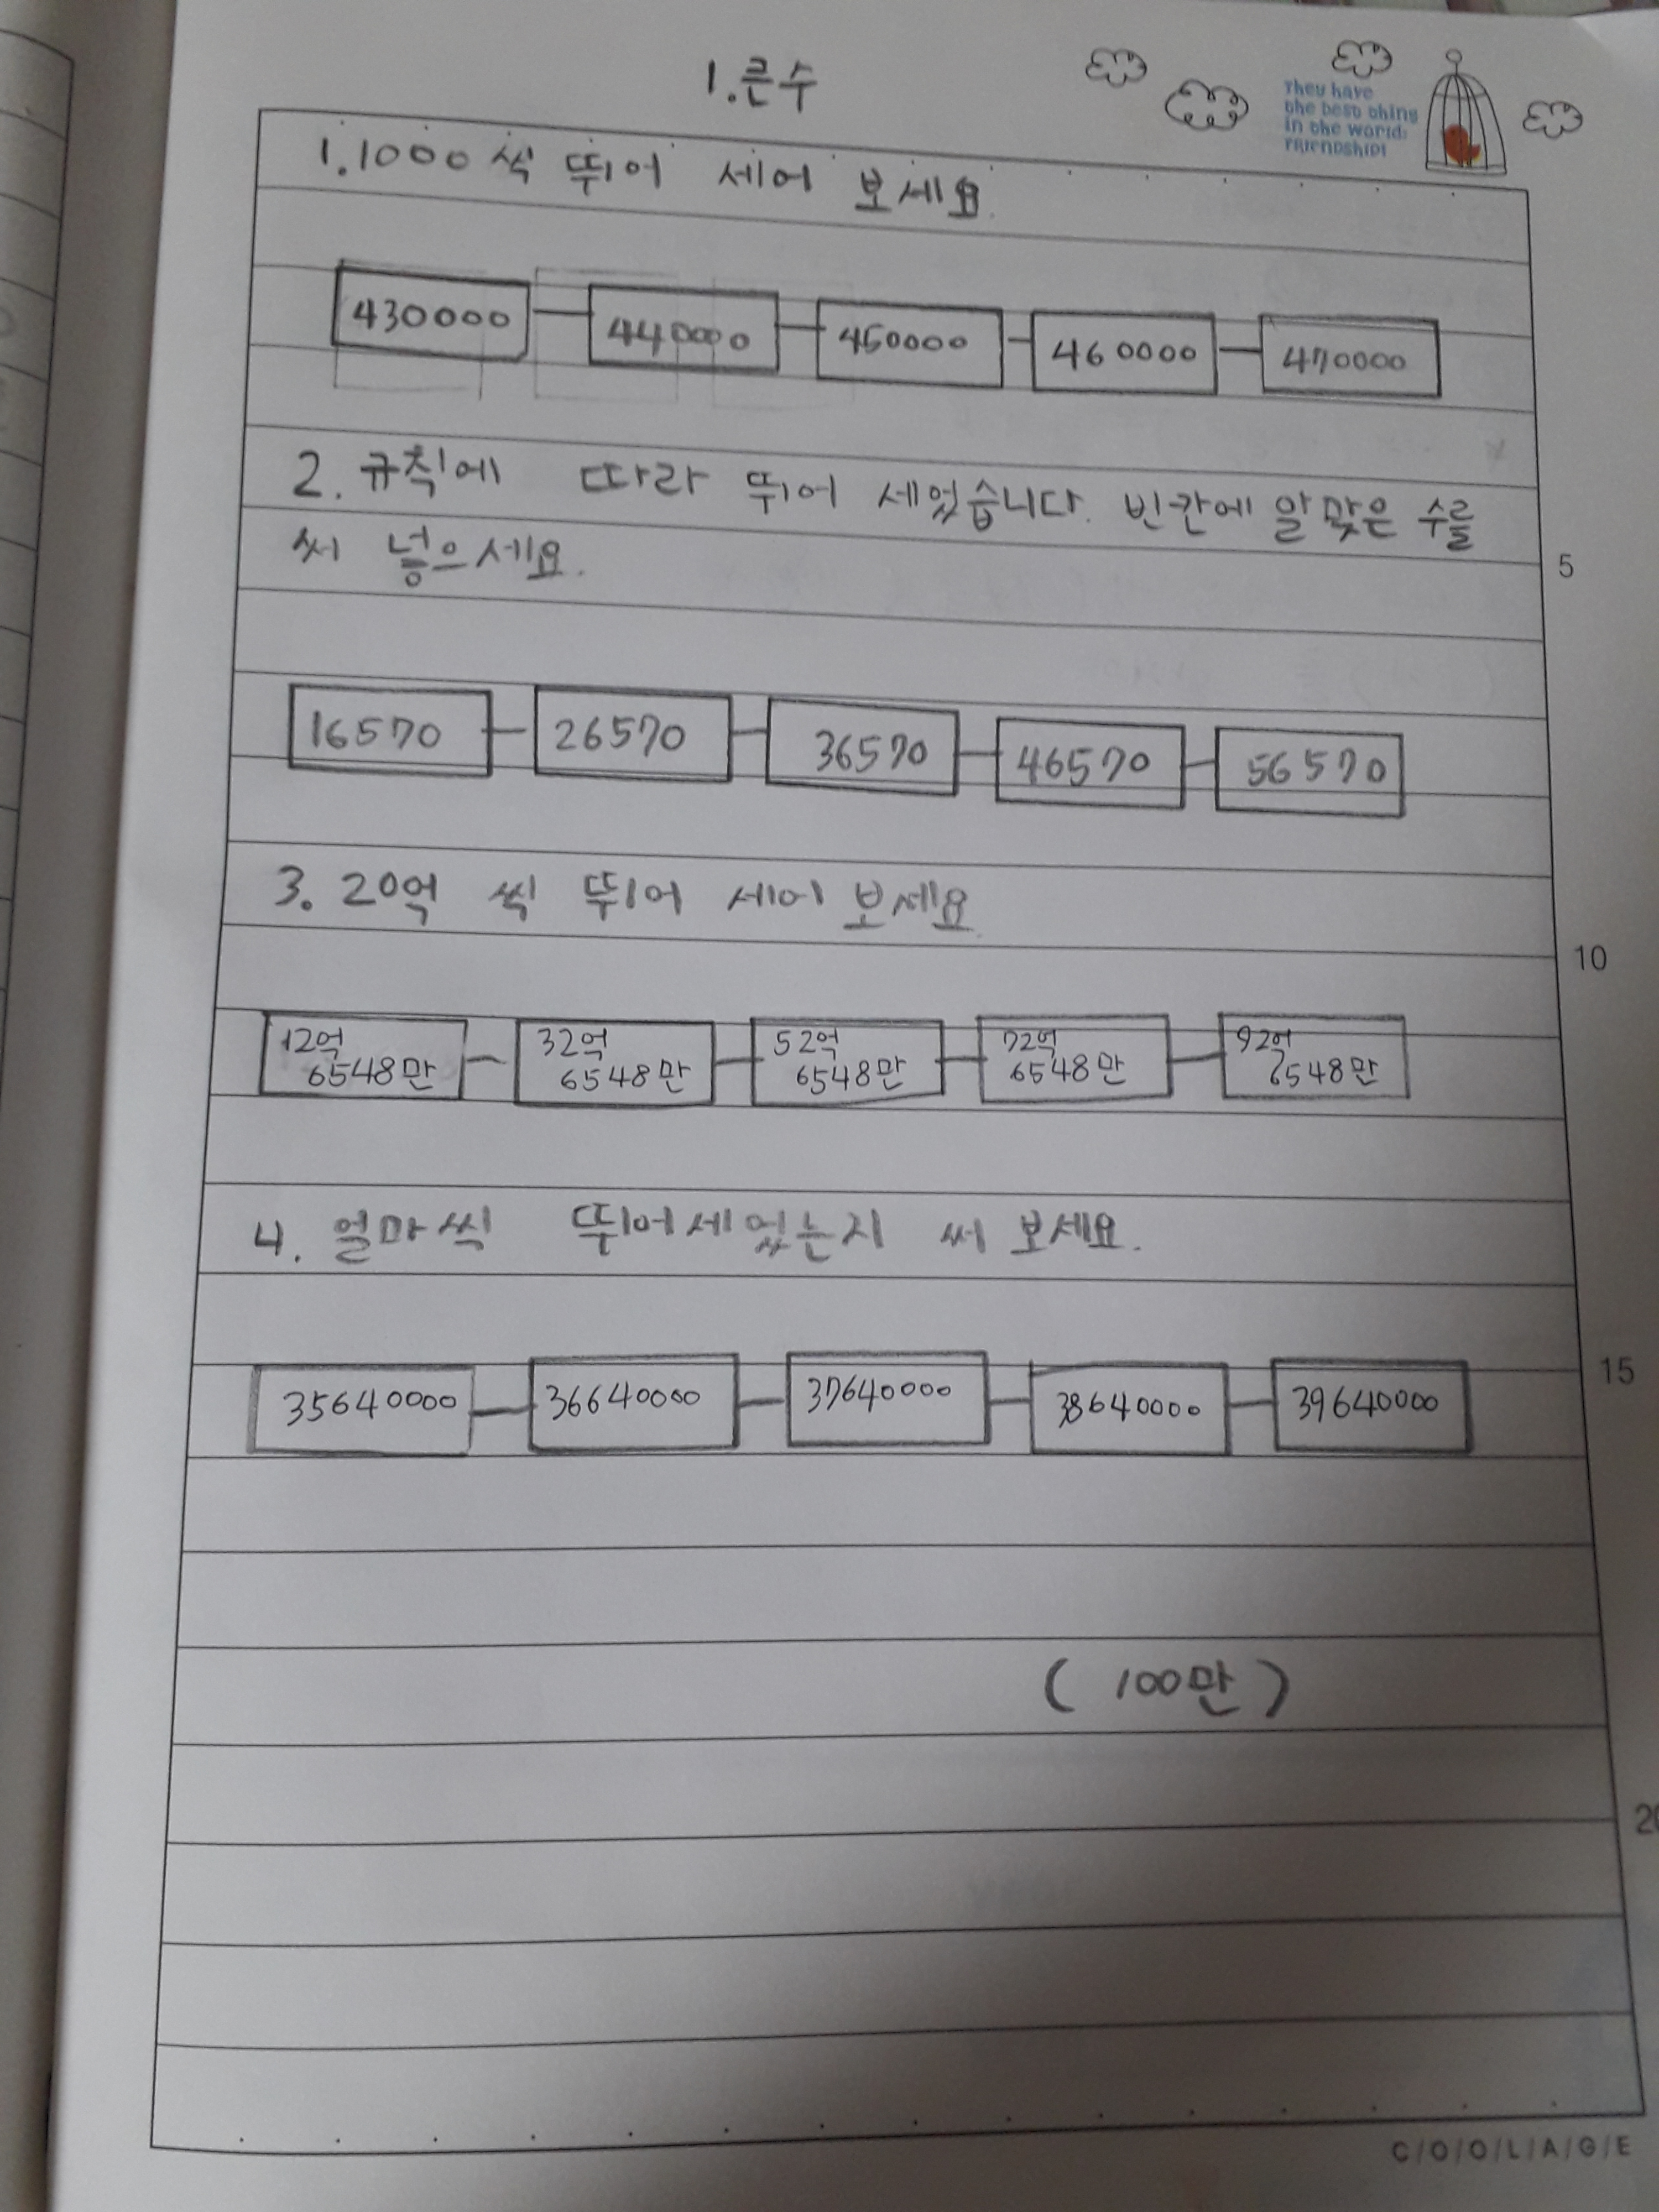 1.큰수
They have
the best thing
in the world:
FRIENDSHIP!
1.1000씩 뛰어 세어 보세요.
430000 440000 450000 460000 470000
2. 규칙에 따라 뛰어 세었습니다. 빈칸에 알맞은 수를
써 넣으세요.
5
16570 26570 36570 46570 56570
3. 20억 씩 뛰어 세어 보세요.
10
12억 6548만 32억 6548만 52억 6548만 72억 6548만 92억 6548만
4. 얼마씩 뛰어세었는지 써 보세요.
15
35640000 36640000 37640000 38640000 39640000
(100만)
20
C/O/O/L/A/G/E